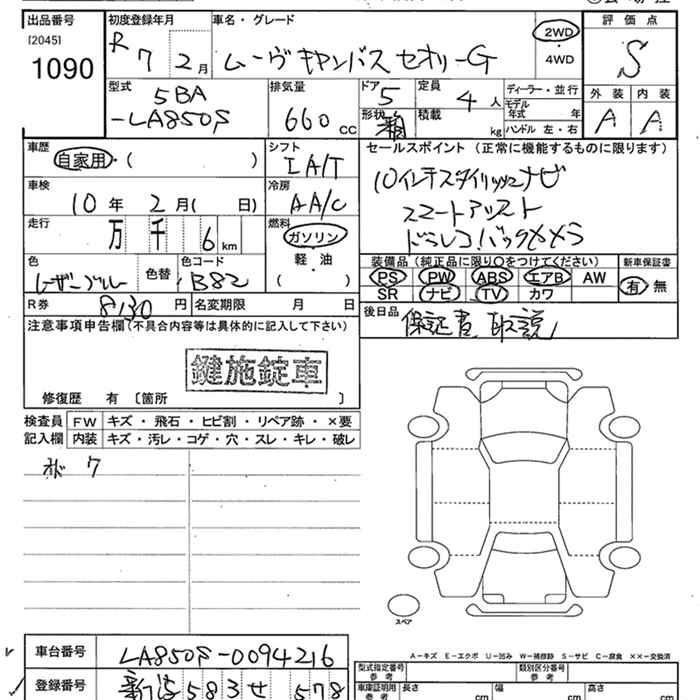 出品番号 初度登録年月 車名・グレード 評価点
[2045] R 7 2月 ムーヴ キャンバス セオリーG 2WD S
1090 4WD
型式 排気量 ドア 定員 ディーラー・並行 外装 内装
5BA 5 4人 モデル年式 年 A A
-LA850S 660cc 形状 積載 kg ハンドル 左・右
車歴 シフト セールスポイント (正常に機能するものに限ります)
自家用・( ) IA/T 10インチスタイリッシュナビ
車検 冷房 スマートアシスト
10年 2月( 日) AA/C ドラレコ バックカメラ
走行 燃料
万 千 6km ガソリン
色 色替 色コード 軽油 装備品 (純正品に限り○をつけてください) 新車保証書
レーザーブルー B82 ( ) PS PW ABS エアB AW 有 無
R券 8130円 名変期限 月 日 SR ナビ TV カワ
注意事項申告欄(不具合内容等は具体的に記入して下さい) 後日品 保証書、取説
鍵施錠車
修復歴 有 〔箇所 〕
検査員 FW キズ・飛石・ヒビ割・リペア跡・×要
記入欄 内装 キズ・汚レ・コゲ・穴・スレ・キレ・破レ
スペア
A－キズ E－エクボ U－凹み W－補修跡 S－サビ C－腐食 XX－交換済
車台番号 LA850S-0094216 型式指定番号 参考 類別区分番号 参考
登録番号 新潟 583 せ 578 車庫証明用 参考 長さ cm 幅 cm 高さ cm